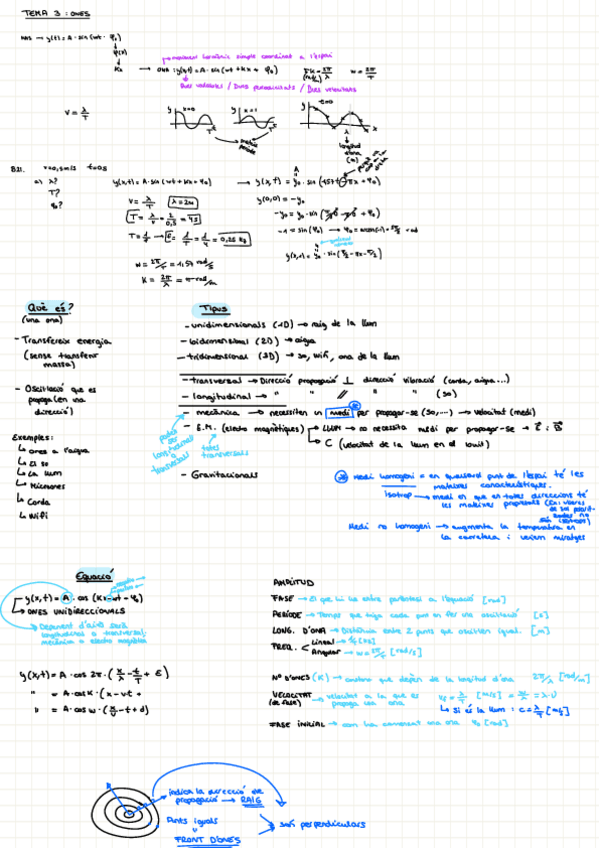 TEMA 3 : ONES
MAS → y(t) = A · sin (wt · φ₀)
moviment harmònic simple coordinat a l'espai
Kx → ONA : y(x,t) = A · sin (wt + Kx + φ₀)
K = 2π/λ (rad/m) w = 2π/T
Dues variables / Dues periodicitats / Dues velocitats
V = λ/T
y x=0 t
y x=1 t
y t=0 x
mateix període
λ longitud d'ona (m)
B21. v=0,5 m/s t=0s
a) λ? y(x,t) = A · sin (wt + kx + φ₀) → y(x,t) = y₀ · sin (1,57t - πx + φ₀)
T?
φ₀?
V = λ/T λ = 2m
T = λ/v = 2/0,5 = 4s
T = 1/f → f = 1/T = 1/4 = 0,25 Hz
w = 2π/T = 1,57 rad/s
K = 2π/λ = π rad/m
y(0,0) = -y₀
-1 = sin (φ₀) → φ₀ = arcsin(-1)
Què és?
(una ona)
- Transfereix energia
(sense transferir massa)
- Oscil·lació que es
propaga (en una
direcció)
Exemples:
↳ ones a l'aigua
↳ El so
↳ La llum
↳ Microones
↳ Corda
↳ Wifi
Tipus
- unidimensionals (1D) → raig de la llum
- bidimensional (2D) → aigua
- tridimensional (3D) → so, wifi, ona de la llum
- transversal → Direcció propagació ⊥ direcció vibració (corda, aigua...)
- longitudinal → " " // " " (so)
- mecànica → necessiten un medi per propagar-se (so,...) → velocitat (medi)
- E.M. (electro magnètiques) → LLUM → no necessita medi per propagar-se → E i B
↳ C (velocitat de la llum en el buit)
poden ser longitudinals o transversals
totes transversals
- Gravitacionals
Medi homogeni = en qualsevol punt de l'espai té les
mateixes característiques.
Isòtrop → medi en que en totes direccions té
les mateixes propietats
Medi no homogeni → augmenta la temperatura en
la carretera i veiem miratges
Equació
y(x,t) = A · cos (Kx - wt - φ₀)
↳ ONES UNIDIRECCIONALS
Depenent d'això serà
longitudinal o transversal;
mecànica o electro magnètica
y(x,t) = A · cos 2π · (x/λ - t/T + ε)
" = A · cos K · (x - vt +
" = A · cos w · (x/v - t + d)
AMPLITUD
FASE → El que hi ha entre parèntesi a l'equació [rad]
PERÍODE → Temps que triga cada punt en fer una oscil·lació [s]
LONG. D'ONA → Distància entre 2 punts que oscil·len igual. [m]
FREQ. < Lineal → 1/T [s]
Angular → w = 2π/T [rad/s]
Nº D'ONES (K) → constant que depèn de la longitud d'ona 2π/λ [rad/m]
VELOCITAT (de fase) → velocitat a la que es propaga una ona v = λ/T [m/s] = w/K = λ·ν
↳ Si és la llum : c = λ/T [m/s]
FASE INICIAL → com ha començat una ona φ₀ [rad]
indica la direcció de
propagació → RAIG
Punts iguals
FRONT D'ONES
són perpendiculars